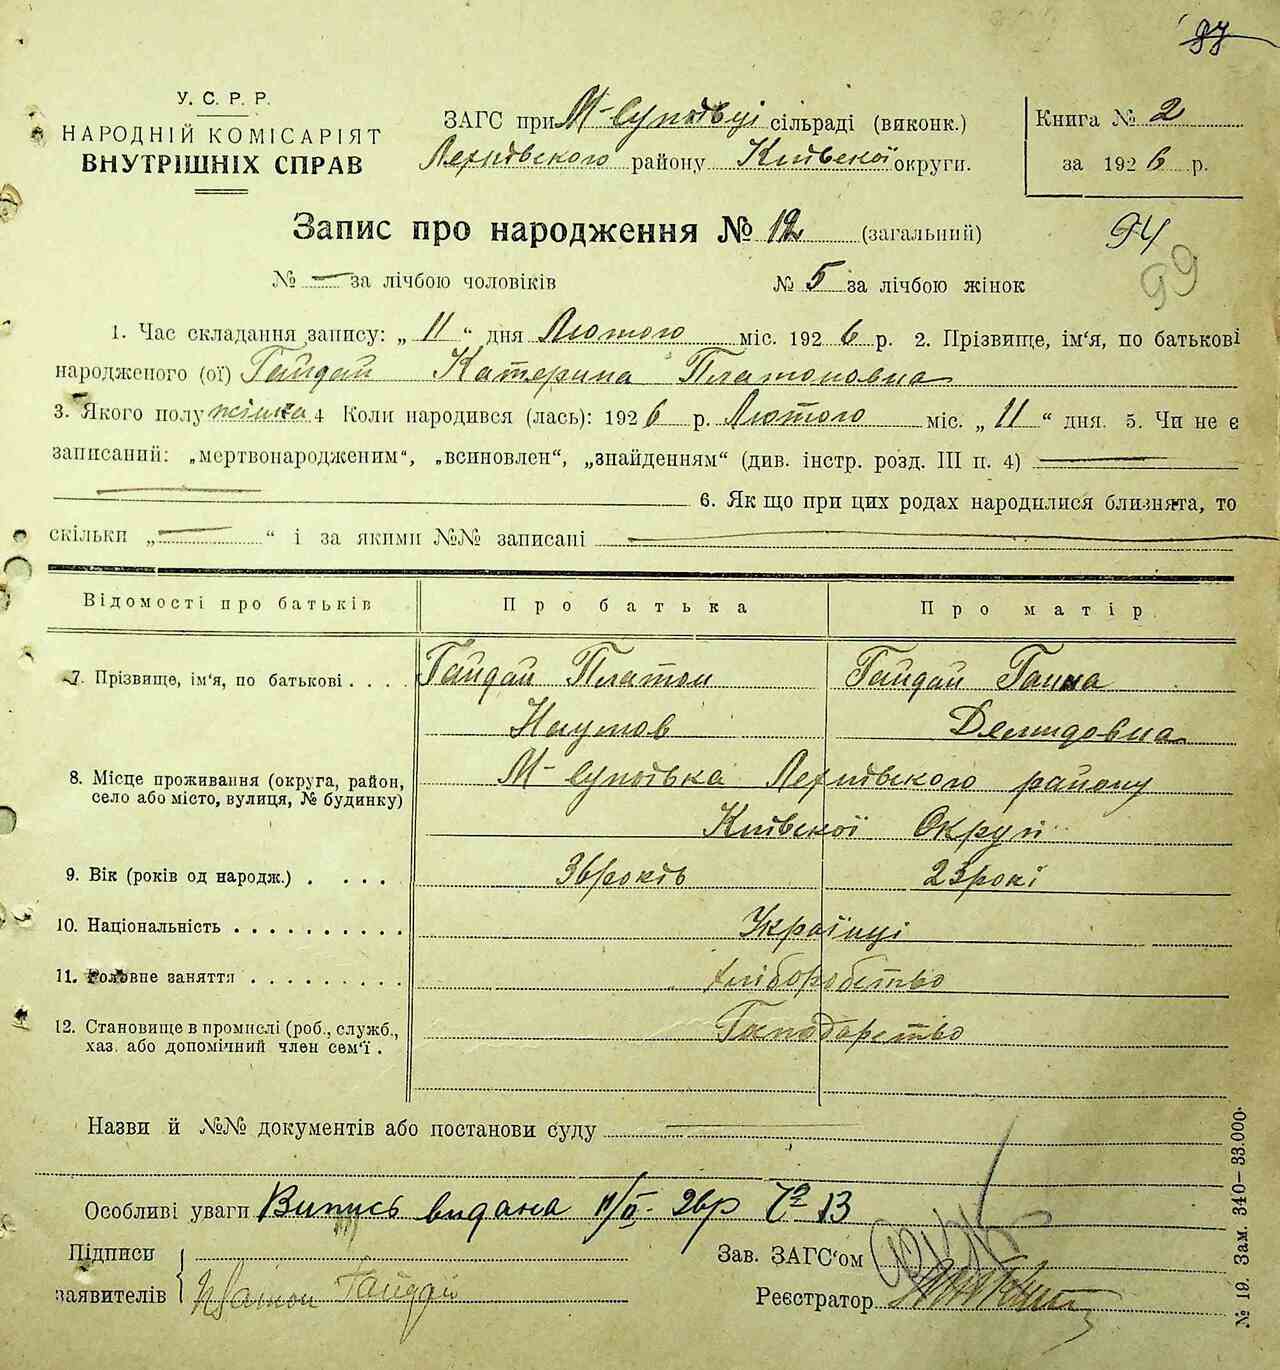 97
У. С. Р. Р.
НАРОДНІЙ КОМІСАРІЯТ
ВНУТРІШНІХ СПРАВ
ЗАГС при М-Супоївці сільраді (виконк.)
Яготівського району Київскої округи.
Книга № 2
за 1926 р.
Запис про народження № 12 (загальний)
94
99
№ — за лічбою чоловіків
№ 5 за лічбою жінок
1. Час складання запису: „ 11 “ дня Лютого міс. 1926 р. 2. Прізвище, ім‘я, по батькові
народженого (ої) Гайдай Катерина Платоновна
3. Якого полу жінка 4 Коли народився (лась): 1926 р. Лютого міс. „ 11 “ дня. 5. Чи не є
записаний: „мертвонародженим“, „всиновлен“, „знайденням“ (див. інстр. розд. III п. 4) —
— 6. Як що при цих родах народилися близнята, то
скільки „ — “ і за якими №№ записані —
Відомості про батьків Про батька Про матір
7. Прізвище, ім‘я, по батькові . . . . Гайдай Платон Гайдай Ганна
Наумов Демидовна
8. Місце проживання (округа, район, М-Супоївка району
село або місто, вулиця, № будинку)
Київскої Округи
9. Вік (років од народж.) . . . . 36 років 23 рокі
10. Національність . . . . . . . . . . Українці
11. Головне заняття . . . . . . . . . хліборобство
12. Становище в промислі (роб., служб., Господарство
хаз. або допомічний член сем‘ї .
Назви й №№ документів або постанови суду —
Особливі уваги Випись видана 11/II- 26р № 13
Підписи
заявителів Платон Гайдай
Зав. ЗАГС‘ом
Реєстратор
№ 19. Зам. 340—33.000.